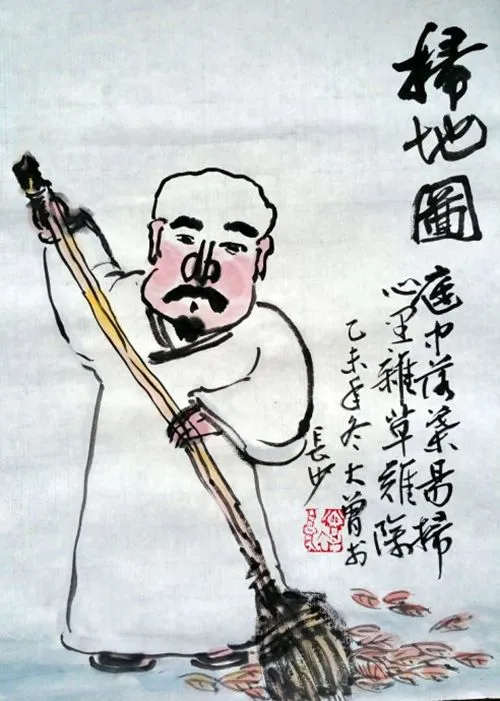 掃地圖
庭中落葉易掃
心里雜草難除
乙未年冬大曾於
長沙